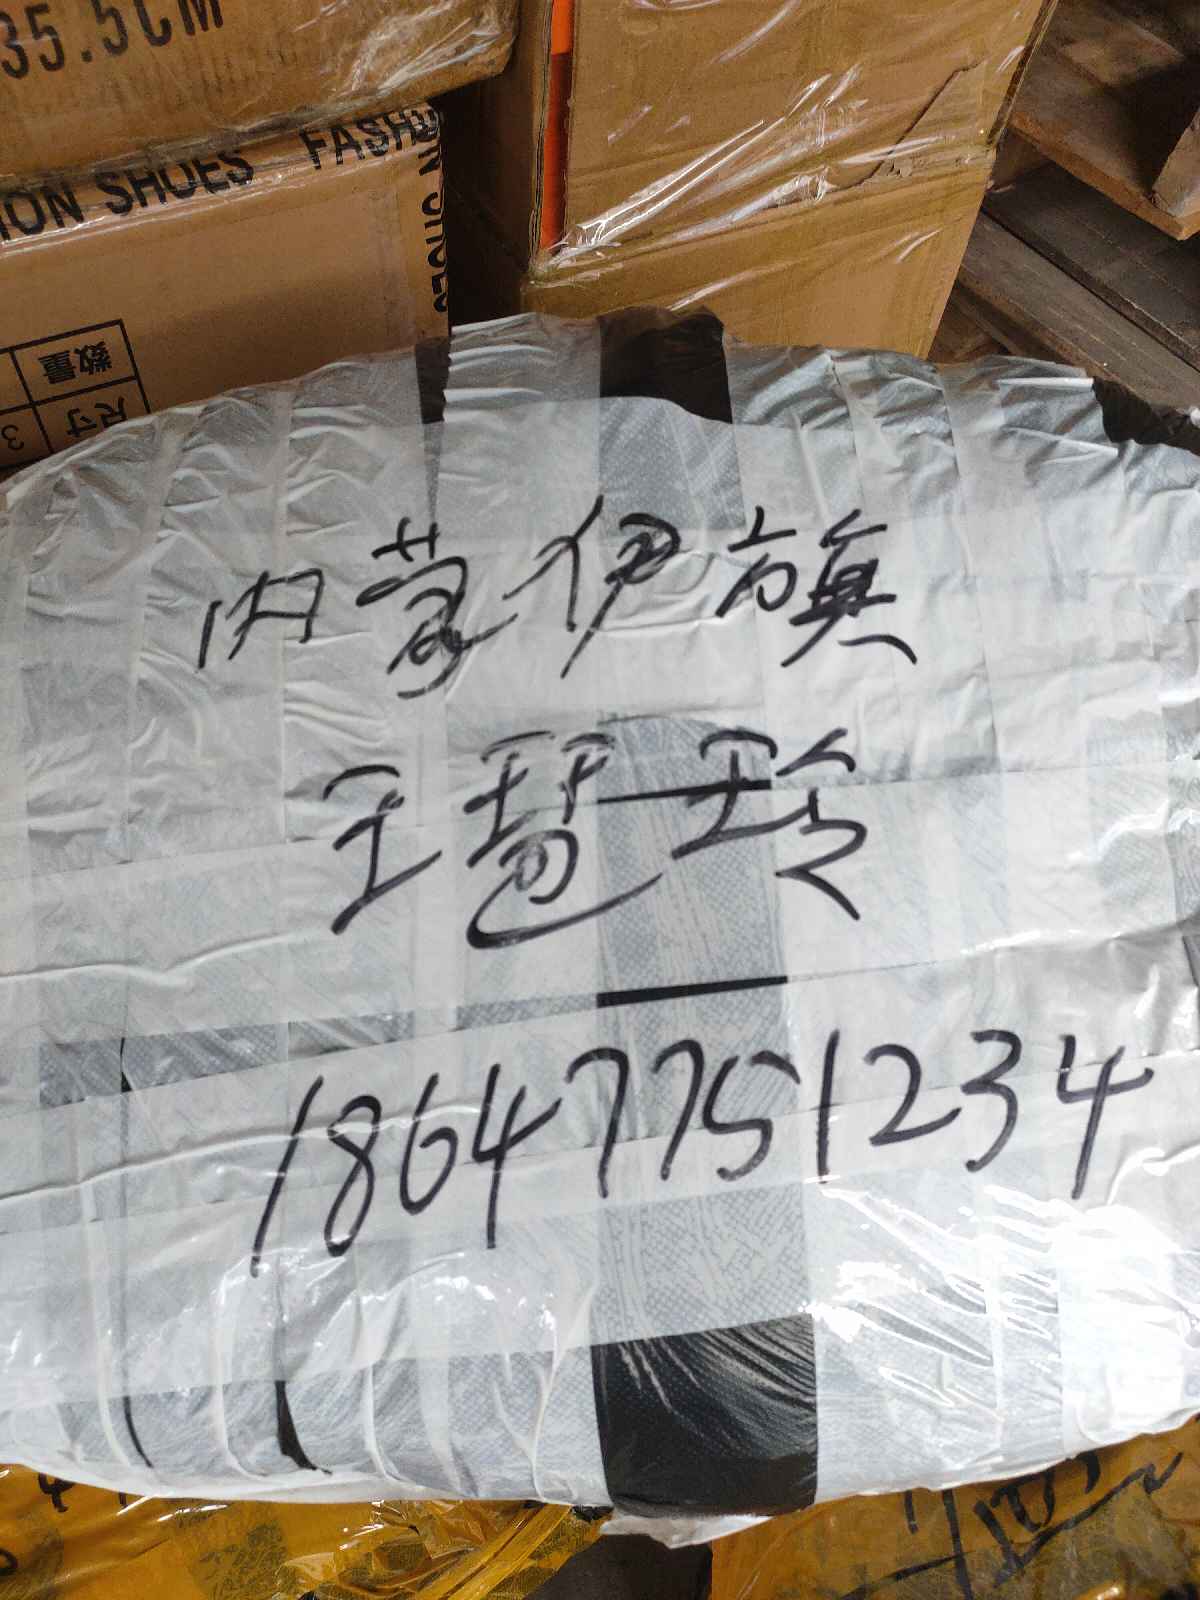 35.5CM
ION SHOES FASHION SHOES
数量
尺寸
3
内蒙伊旗
王琶玲
18647751234